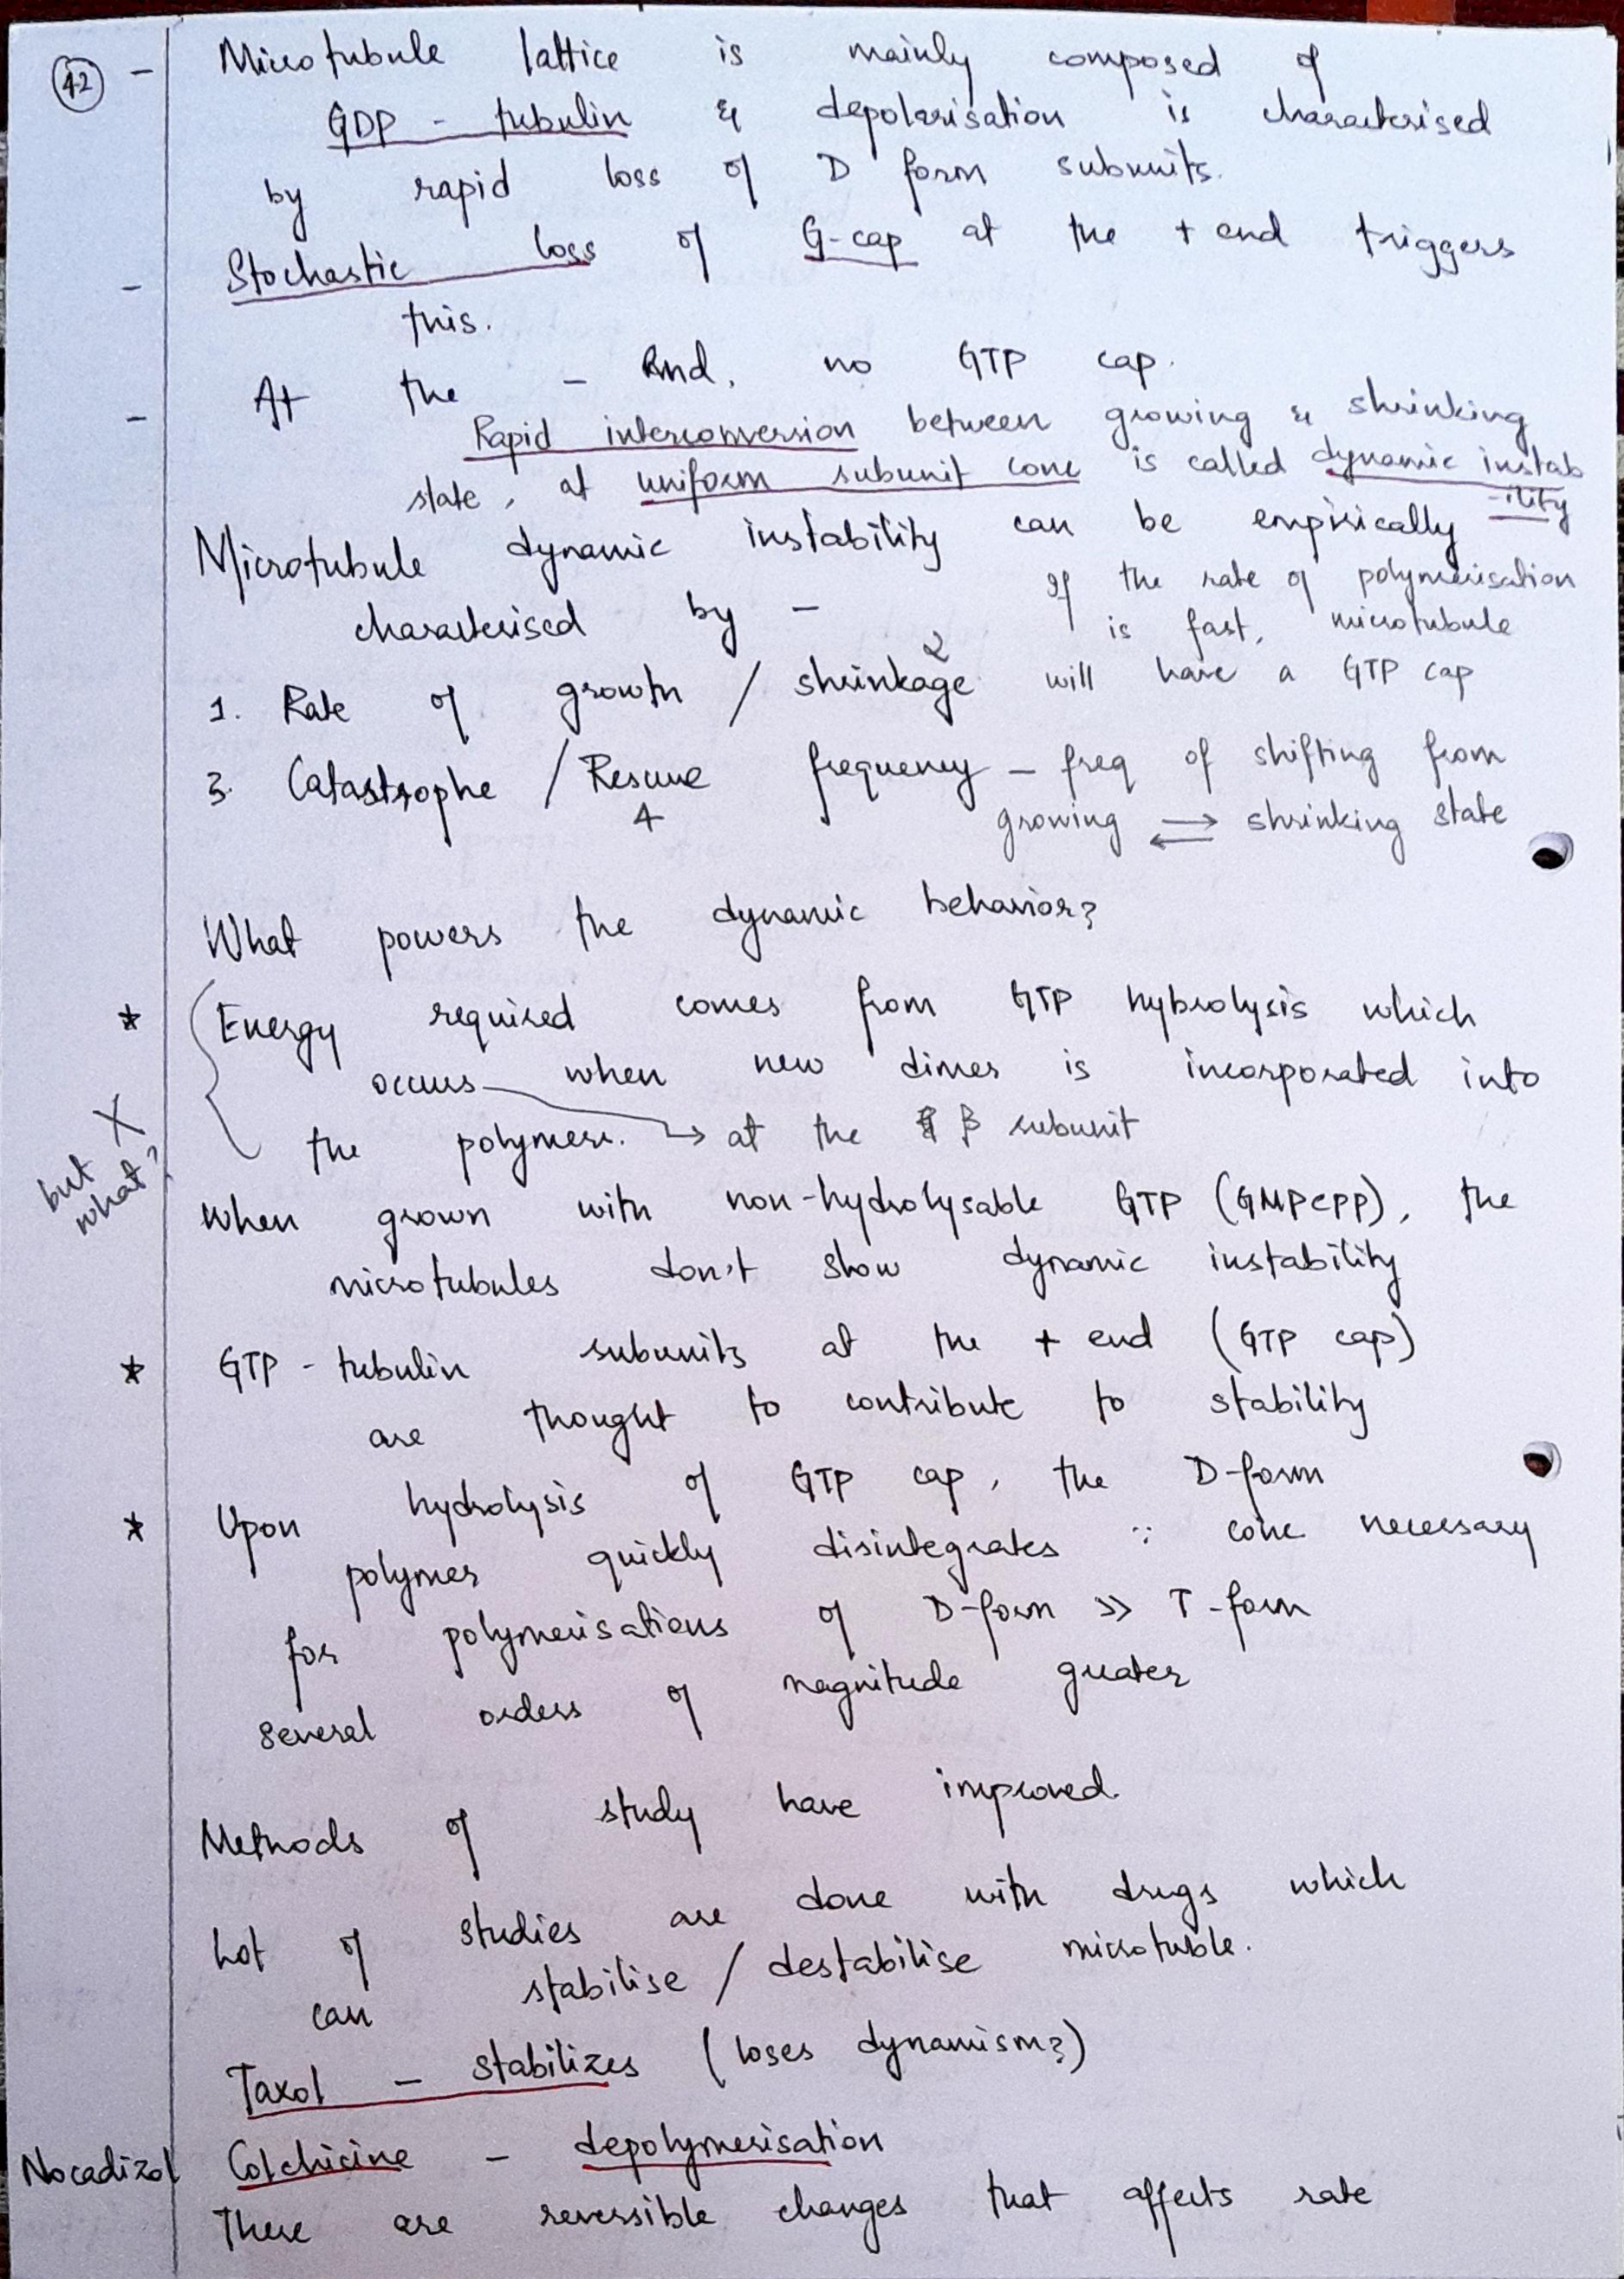 42
- Microtubule lattice is mainly composed of
GDP - tubulin & depolarisation is characterised
by rapid loss of D form subunits.
- Stochastic loss of G-cap at the + end triggers
this.
- At the - end, no GTP cap.
Rapid interconversion between growing & shrinking
state, at uniform subunit conc is called dynamic instab
-ility
Microtubule dynamic instability can be empirically
characterised by -
If the rate of polymerisation
is fast, microtubule
will have a GTP cap
1. Rate of growth / shrinkage 2
3. Catastrophe / Rescue frequency - freq of shifting from
4
growing ⇌ shrinking state
What powers the dynamic behavior?
* Energy required comes from GTP hybrolysis which
occurs when new dimer is incorporated into
the polymer. → at the β subunit
X but what?
When grown with non-hydrolysable GTP (GMPCPP), the
microtubules don't show dynamic instability
* GTP - tubulin subunits at the + end (GTP cap)
are thought to contribute to stability
* Upon hydrolysis of GTP cap, the D-form
polymer quickly disintegrates ∵ conc necessary
for polymerisations of D-form >> T-form
several orders of magnitude greater
Methods of study have improved.
Lot of studies are done with drugs which
can stabilise / destabilise microtuble.
Taxol - stabilizes (loses dynamism?)
Nocadizol Colchicine - depolymerisation
These are reversible changes that affects rate